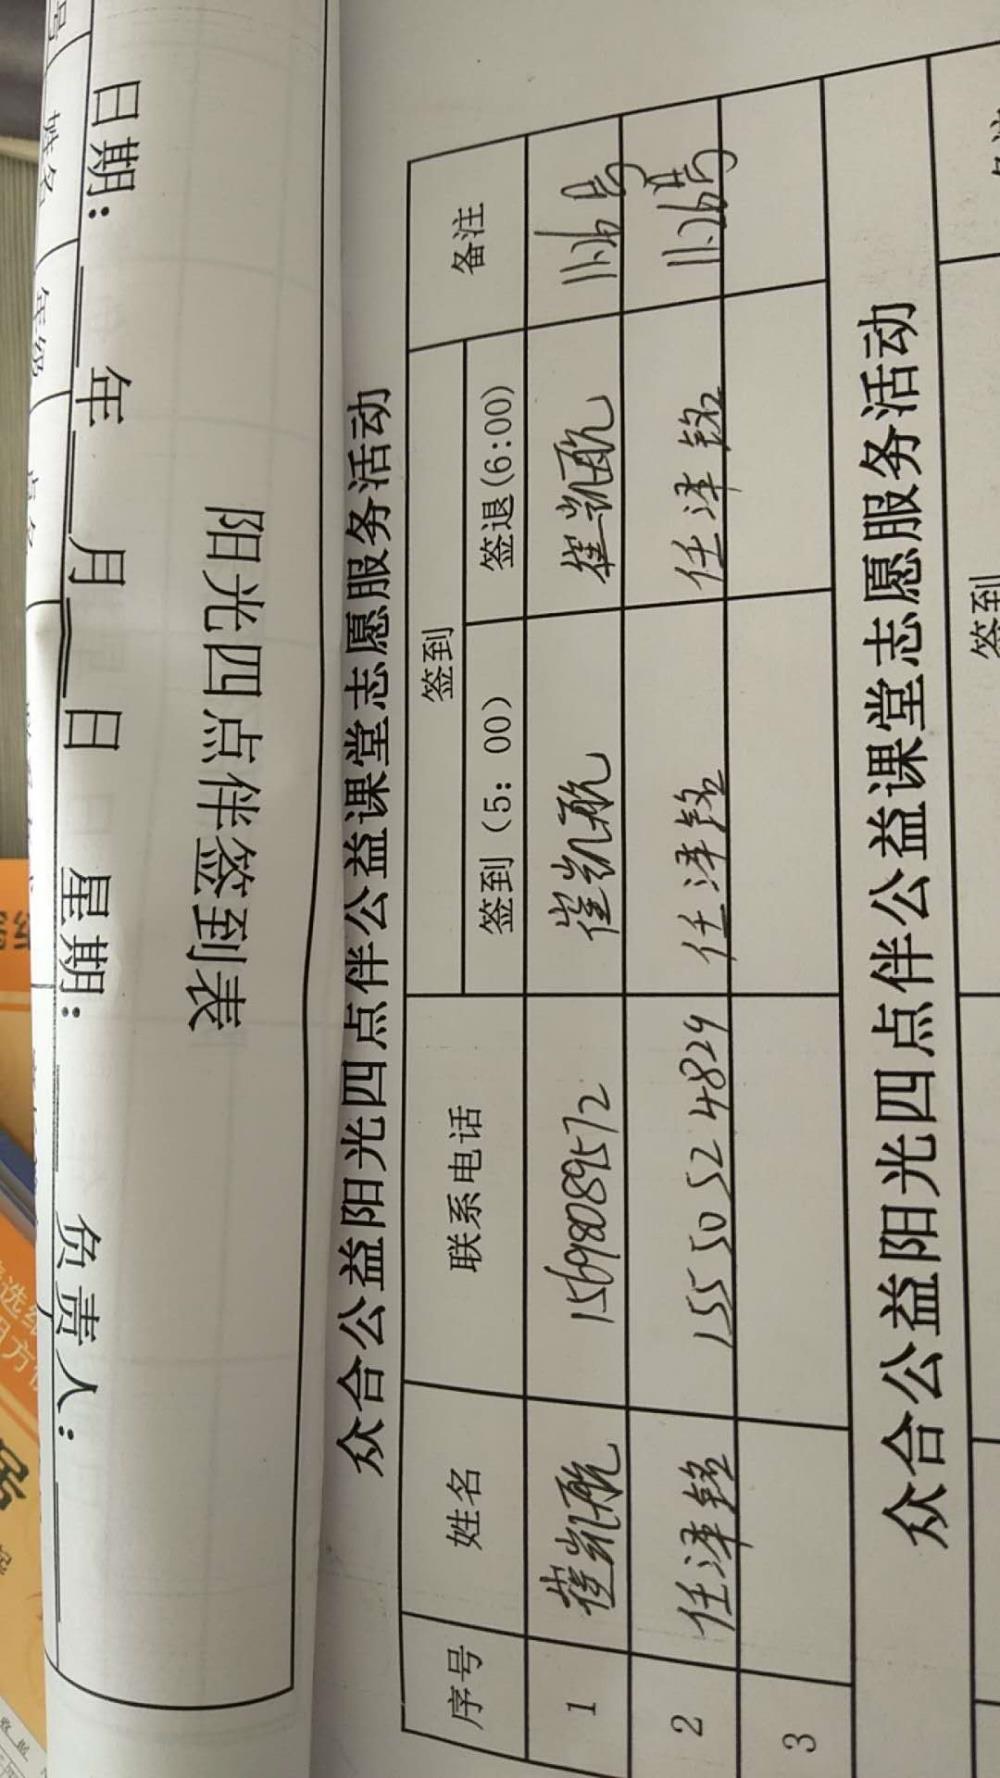 阳光四点伴签到表
日期： 年 月 日 星期： 负责人：
姓名 年级
众合公益阳光四点伴公益课堂志愿服务活动
序号 姓名 联系电话 签到 备注
签到（5：00） 签退(6:00)
1 崔凯航 15698089572 崔凯航 崔凯航 11.26号
2 任泽铭 15550524829 任泽铭 任泽铭 11.26号
3
众合公益阳光四点伴公益课堂志愿服务活动
签到